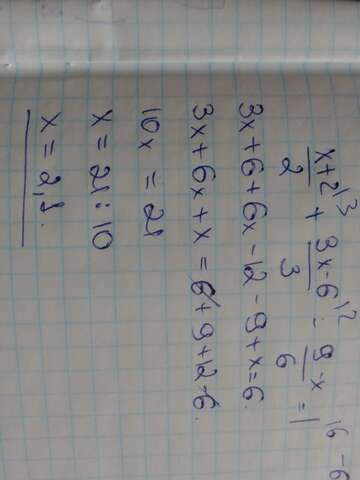 (x+2)/2 ¹³ + (3x-6)/3 ¹² - (9-x)/6 = 1 ¹⁶ -6
3x+6+6x-12-9+x=6.
3x+6x+x=6+9+12-6.
10x = 21
x = 21:10
x = 2,1.